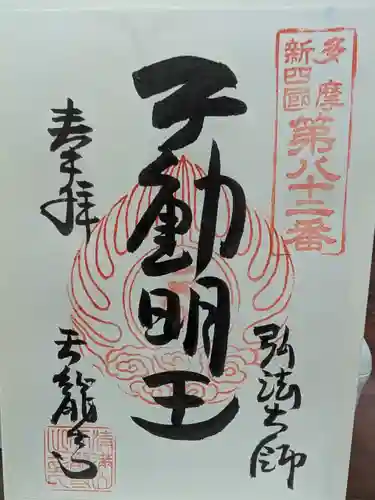 多摩
新四國
第八十二番
弘法大師
不動明王
奉拝
天龍寺